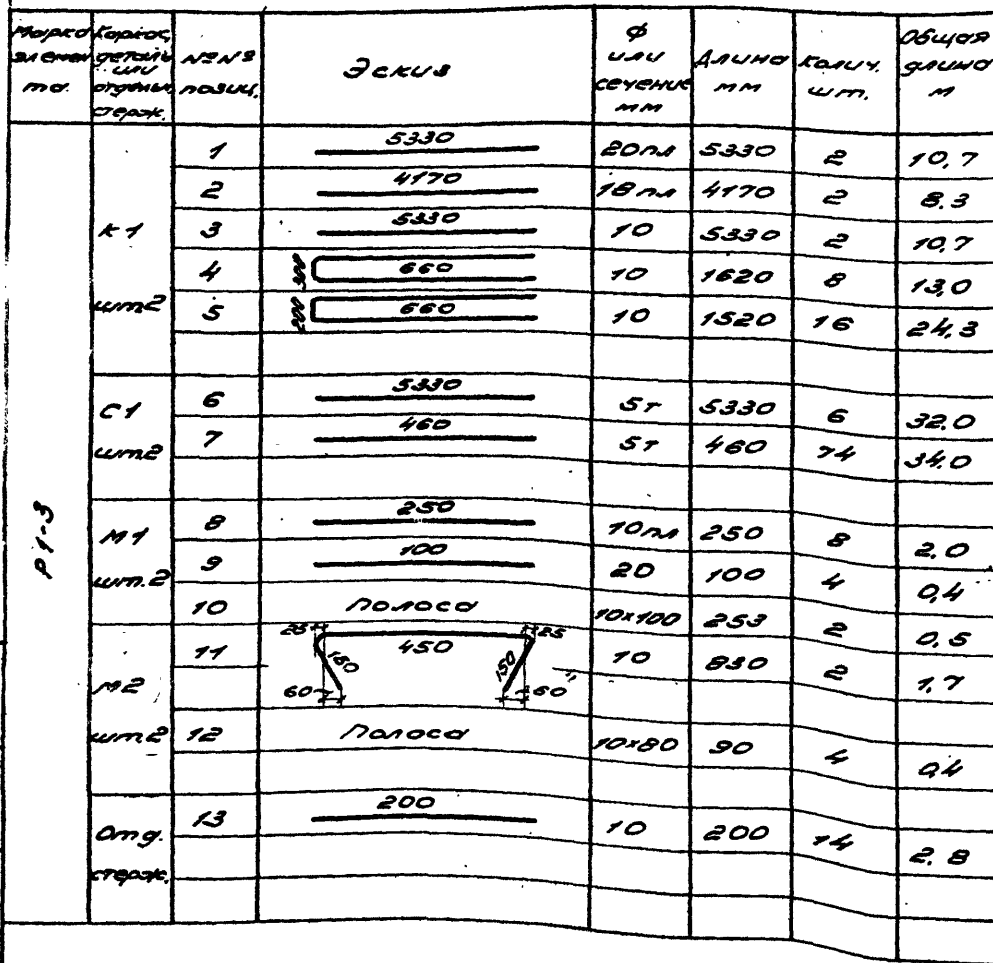 Марка элемен та.
Каркас, деталь или отдельн. стерж.
№№ позиц.
Эскиз
Ф или сечение мм
Длина мм
Колич. шт.
Общая длина м
Р1-3
К1 шт2
1 5330 20пл 5330 2 10,7
2 4170 18пл 4170 2 8.3
3 5330 10 5330 2 10,7
4 300 660 10 1620 8 13,0
5 200 660 10 1520 16 24,3
С1 шт2
6 5330 5т 5330 6 32.0
7 460 5т 460 74 34.0
М1 шт.2
8 250 10пл 250 8 2.0
9 100 20 100 4 0,4
10 Полоса 10×100 253 2 0,5
М2 шт2
11 25 450 25 150 150 60 60 10 830 2 1,7
12 Полоса 10×80 90 4 0,4
Отд. стерж.
13 200 10 200 14 2.8